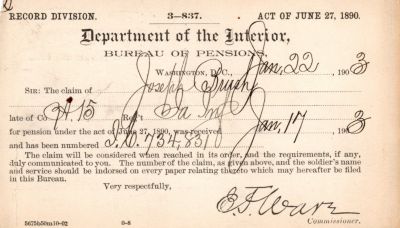 RECORD DIVISION. 3—837. ACT OF JUNE 27, 1890.
Department of the Interior,
BUREAU OF PENSIONS,
WASHINGTON, D.C., Jan. 22, 1903
SIR: The claim of Joseph Brush
late of Co. H. 15 Reg't Ia Inf
for pension under the act of June 27, 1890, was received Jan. 17 3
and has been numbered 734,831
The claim will be considered when reached in its order, and the requirements, if any,
duly communicated to you. The number of the claim, as given above, and the soldier's name
and service should be indorsed on every paper relating thereto which may hereafter be filed
in this Bureau.
Very respectfully,
E. F. Ware
Commissioner.
5675b50m10-02 0-8